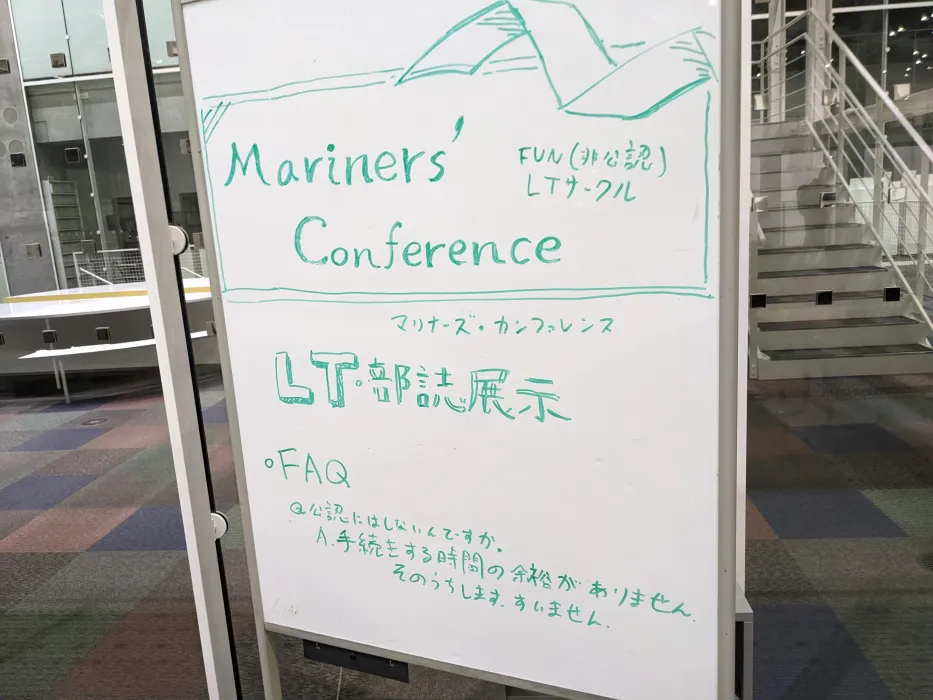 Mariners'
Conference
FUN(非公認)
LTサークル
マリナーズ・カンファレンス
LT・部誌展示
・FAQ
Q.公認にはしないんですか。
A.手続きをする時間の余裕がありません.
そのうちします.すいません.